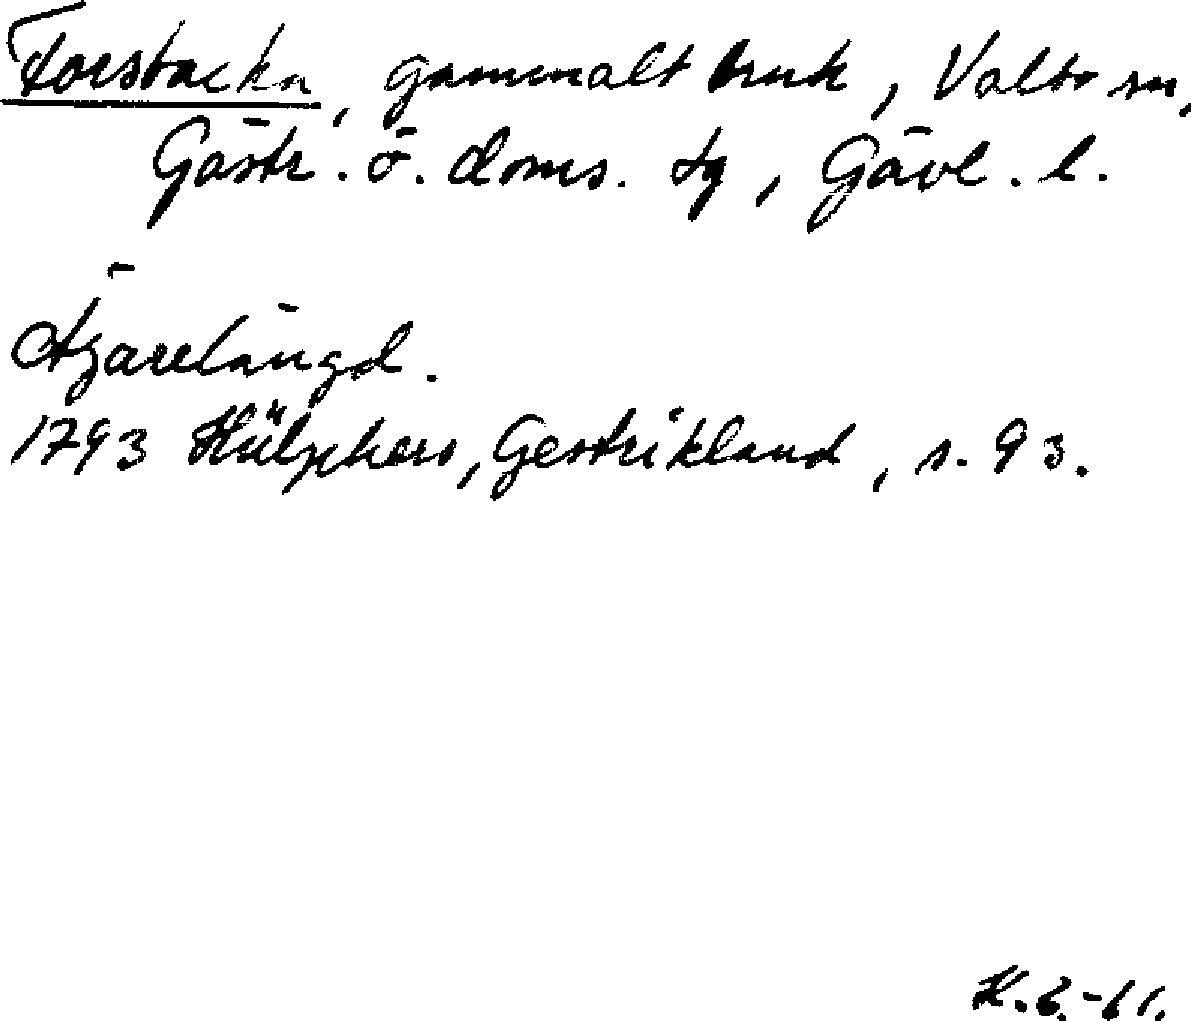 Forsbacka, gammalt bruk, Valbo sn,
Gästr. ö. doms. tg, Gävl. l.
Ägarelängd.
1793 Hülphers, Gestrikland, s. 93.
K.B.-61.